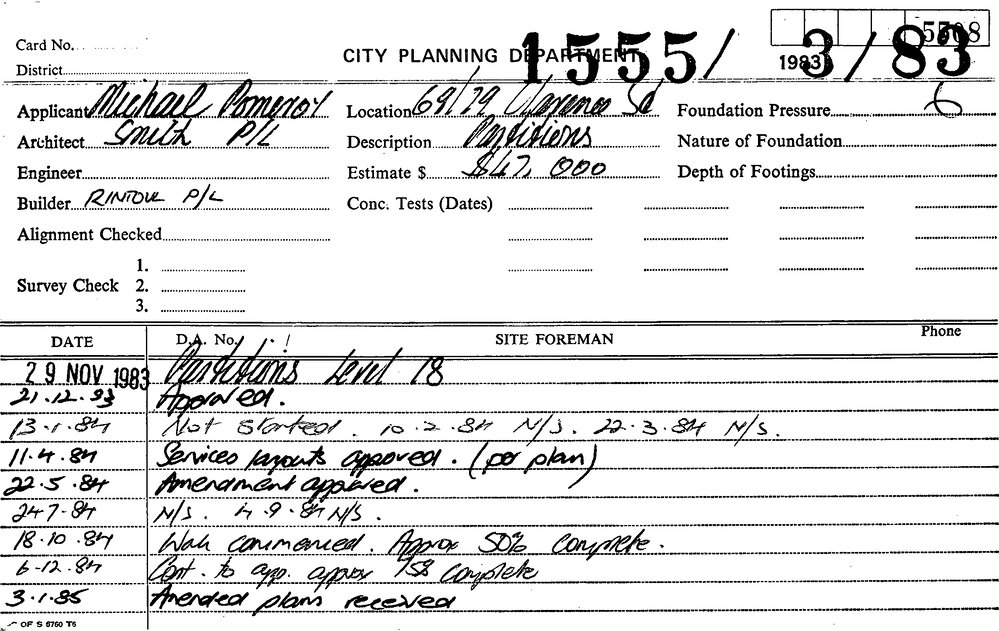 5508
Card No.
CITY PLANNING DEPARTMENT
1555/ 3 / 83
1983
District
Applicant Michael Pomeroy Location 69/79 Clarence St Foundation Pressure 6
Architect Smith P/L Description Partitions Nature of Foundation
Engineer Estimate $ $47,000 Depth of Footings
Builder RINTOUL P/L Conc. Tests (Dates)
Alignment Checked
1.
Survey Check 2.
3.
DATE D.A. No. SITE FOREMAN Phone
29 NOV 1983 Partitions Level 18
21.12.83 Approved.
13.1.84 Not Started. 10.2.84 N/S. 22.3.84 N/S.
11.4.84 Services layouts approved. (per plan)
22.5.84 Amendment approved.
24.7.84 N/S. 4.9.84 N/S.
18.10.84 Work commenced. Approx 50% complete.
6.12.84 Cont. to app. approx 75% complete
3.1.85 Amended plans received
OF S 6760 T6